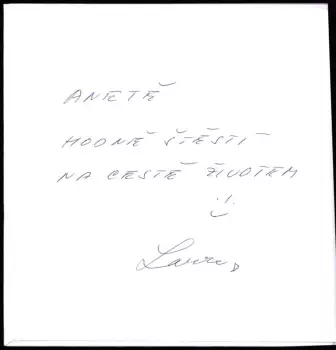 ANETĚ
HODNĚ ŠTĚSTÍ
NA CESTĚ ŽIVOTEM
:)